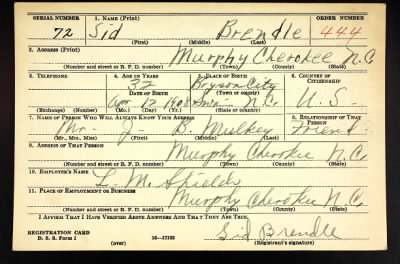 SERIAL NUMBER 1. NAME (Print) ORDER NUMBER
72 Sid Brendle 444
(First) (Middle) (Last)
2. ADDRESS (Print)
Murphy Cherokee N.C.
(Number and street or R. F. D. number) (Town) (County) (State)
3. TELEPHONE 4. AGE IN YEARS 5. PLACE OF BIRTH 6. COUNTRY OF CITIZENSHIP
32 Bryson City
DATE OF BIRTH (Town or county)
Apr 12 1908 N.C. U.S.
(Exchange) (Number) (Mo.) (Day) (Yr.) (State or country)
7. NAME OF PERSON WHO WILL ALWAYS KNOW YOUR ADDRESS 8. RELATIONSHIP OF THAT PERSON
Mr. J. B. Mulkey Friend
(Mr., Mrs., Miss) (First) (Middle) (Last)
9. ADDRESS OF THAT PERSON
Murphy Cherokee N.C.
(Number and street or R. F. D. number) (Town) (County) (State)
10. EMPLOYER'S NAME
L. M. Shields
11. PLACE OF EMPLOYMENT OR BUSINESS
Murphy Cherokee N.C.
(Number and street or R. F. D. number) (Town) (County) (State)
I AFFIRM THAT I HAVE VERIFIED ABOVE ANSWERS AND THAT THEY ARE TRUE.
REGISTRATION CARD
D. S. S. Form 1 (over) 16—17105
Sid Brendle
(Registrant's signature)